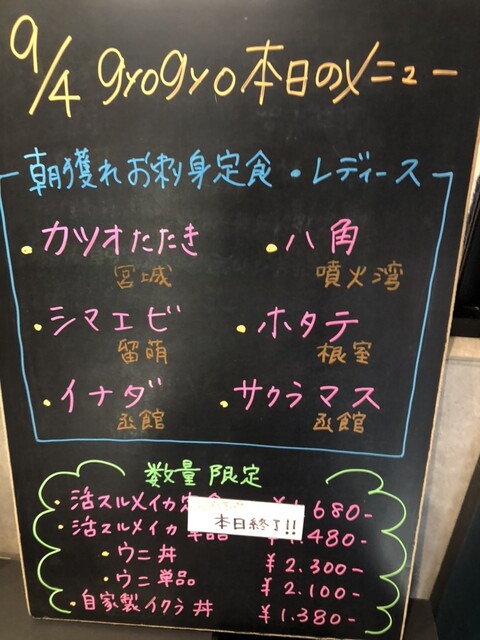 9/4 gyogyo本日のメニュー
朝獲れお刺身定食・レディース
・カツオたたき ・八角
宮城 噴火湾
・シマエビ ・ホタテ
留萌 根室
・イナダ ・サクラマス
函館 函館
数量限定
・活スルメイカ定食 ¥1.680-
・活スルメイカ単品 ¥1.480-
本日終了!!
・ウニ丼 ¥2.300-
・ウニ単品 ¥2.100-
・自家製イクラ丼 ¥1.380-